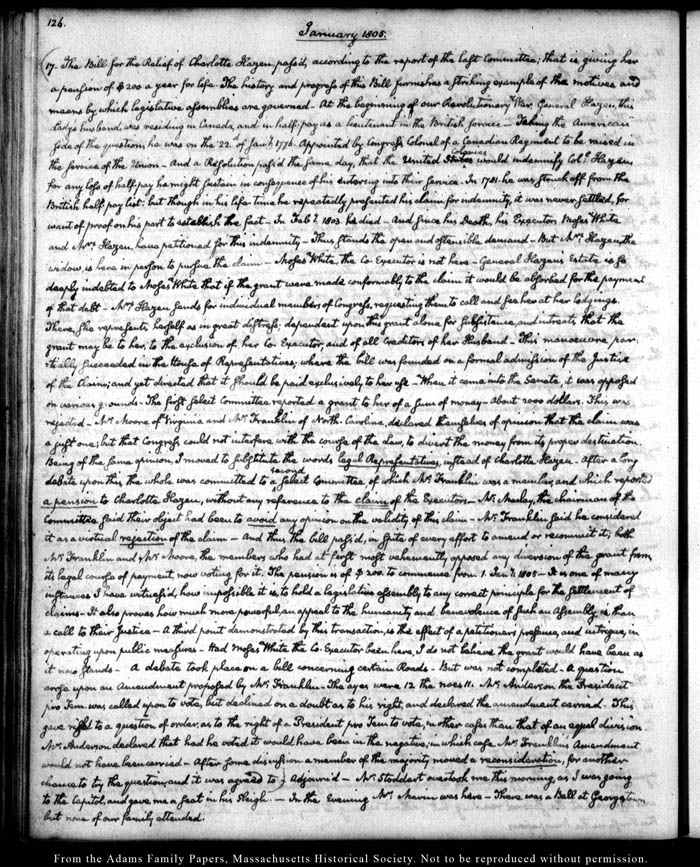 126.
January 1805.
17. The Bill for the Relief of Charlotte Hazen, pass'd, according to the report of the last Committee; that is giving her
a pension of $200 a year for life. The history and progress of this Bill furnishes a striking example of the motives and
means by which legislative assemblies are governed — At the beginning of our Revolutionary War, General Hazen, this
lady's husband, was residing in Canada, and in half-pay as a lieutenant in the British service — Taking the American
side of the question, he was on the 22. of Jany. 1776. Appointed by Congress Colonel of a Canadian Regiment to be raised in
the service of the Union — And a Resolution pass'd the same day, that the United States Colonies would indemnify Coll. Hazen
for any loss of half-pay he might sustain in consequence of his entering into their service. In 1781. he was struck off from the
British half-pay list: but though in his life-time he repeatedly presented his claim for indemnity, it was never settled, for
want of proof on his part to establish the fact — In Feby. 1803. he died — And since his Death, his Executor Moses White
and Mrs. Hazen, have petitioned for this indemnity — Thus stands the open and ostensible demand — But Mrs. Hazen, the
widow, is here in person to pursue the claim — Moses White, the Co-Executor is not here — General Hazen's Estate is so
deeply indebted to Moses White that if the grant were made conformably to the claim it would be absorbed for the payment
of that debt — Mrs. Hazen sends for individual members of Congress, requesting them to call and see her at her lodgings.
There, she represents herself as in great distress; dependent upon this grant alone for subsistence, and intreats that the
grant may be to her, to the exclusion of her Co-Executor, and of all Creditors of her Husband — This manoeuvre par-
-tially succeeded in the House of Representatives, where the bill was founded on a formal admission of the Justice
of the Claim; and yet directed that it should be paid exclusively to her use — When it came into the Senate, it was opposed
on various grounds — The first select Committee reported a grant to her of a sum of money — About 2000 dollars. This was
rejected — Mr. Moore of Virginia and Mr. Franklin of North-Carolina, declared themselves of opinion that the claim was
a just one; but that Congress could not interfere with the course of the Law, to divert the money from its proper destination.
Being of the same opinion, I moved to substitute the words legal Representatives, instead of Charlotte Hazen — After a long
debate upon this, the whole was committed to a second select Committee, of which Mr. Franklin was a member, and which reported
a pension to Charlotte Hazen, without any reference to the claim of the Executors — Mr. Maclay, the chairman of the
Committee said their object had been to avoid any opinion on the validity of this claim — Mr. Franklin said he considered
it as a virtual rejection of the claim — And thus the bill pass'd, in spite of every effort to amend or recommit it; both
Mr. Franklin and Mr. Moore, the members who had at first most vehemently opposed any diversion of the grant from
its legal course of payment, now voting for it. The pension is of $200. to commence from 1. Jany. 1805 — It is one of many
instances I have witness'd, how impossible it is, to hold a legislative assembly to any correct principle for the settlement of
claims — It also proves how much more powerful, an appeal to the humanity and benevolence of such an Assembly is, than
a call to their Justice — A third point demonstrated by this transaction, is the effect of a petitioner's presence, and intrigue, in
operating upon public measures — Had Moses White the Co-Executor been here, I do not believe the grant would have been as
it now stands — A debate took place on a bill concerning certain Roads — But was not completed — A question
arose upon an Amendment proposed by Mr. Franklin — The ayes were 12 the noes 11. Mr. Anderson the President
pro Tem. was called upon to vote, but declined on a doubt as to his right, and declared the amendment carried. This
gave right to a question of order, as to the right of a President pro Tem to vote, in other cases than that of an equal division
Mr. Anderson declared that had he voted it would have been in the negative; in which case Mr. Franklin's Amendment
would not have been carried — After some discussion a member of the majority moved a reconsideration, for another
chance to try the question, and it was agreed to) Adjourn'd — Mr. Stoddert overtook me this morning, as I was going
to the Capitol, and gave me a seat in his Sleigh — In the Evening Mr. Marin was here — There was a Ball at Georgetown
but none of our family attended.
From the Adams Family Papers, Massachusetts Historical Society. Not to be reproduced without permission.